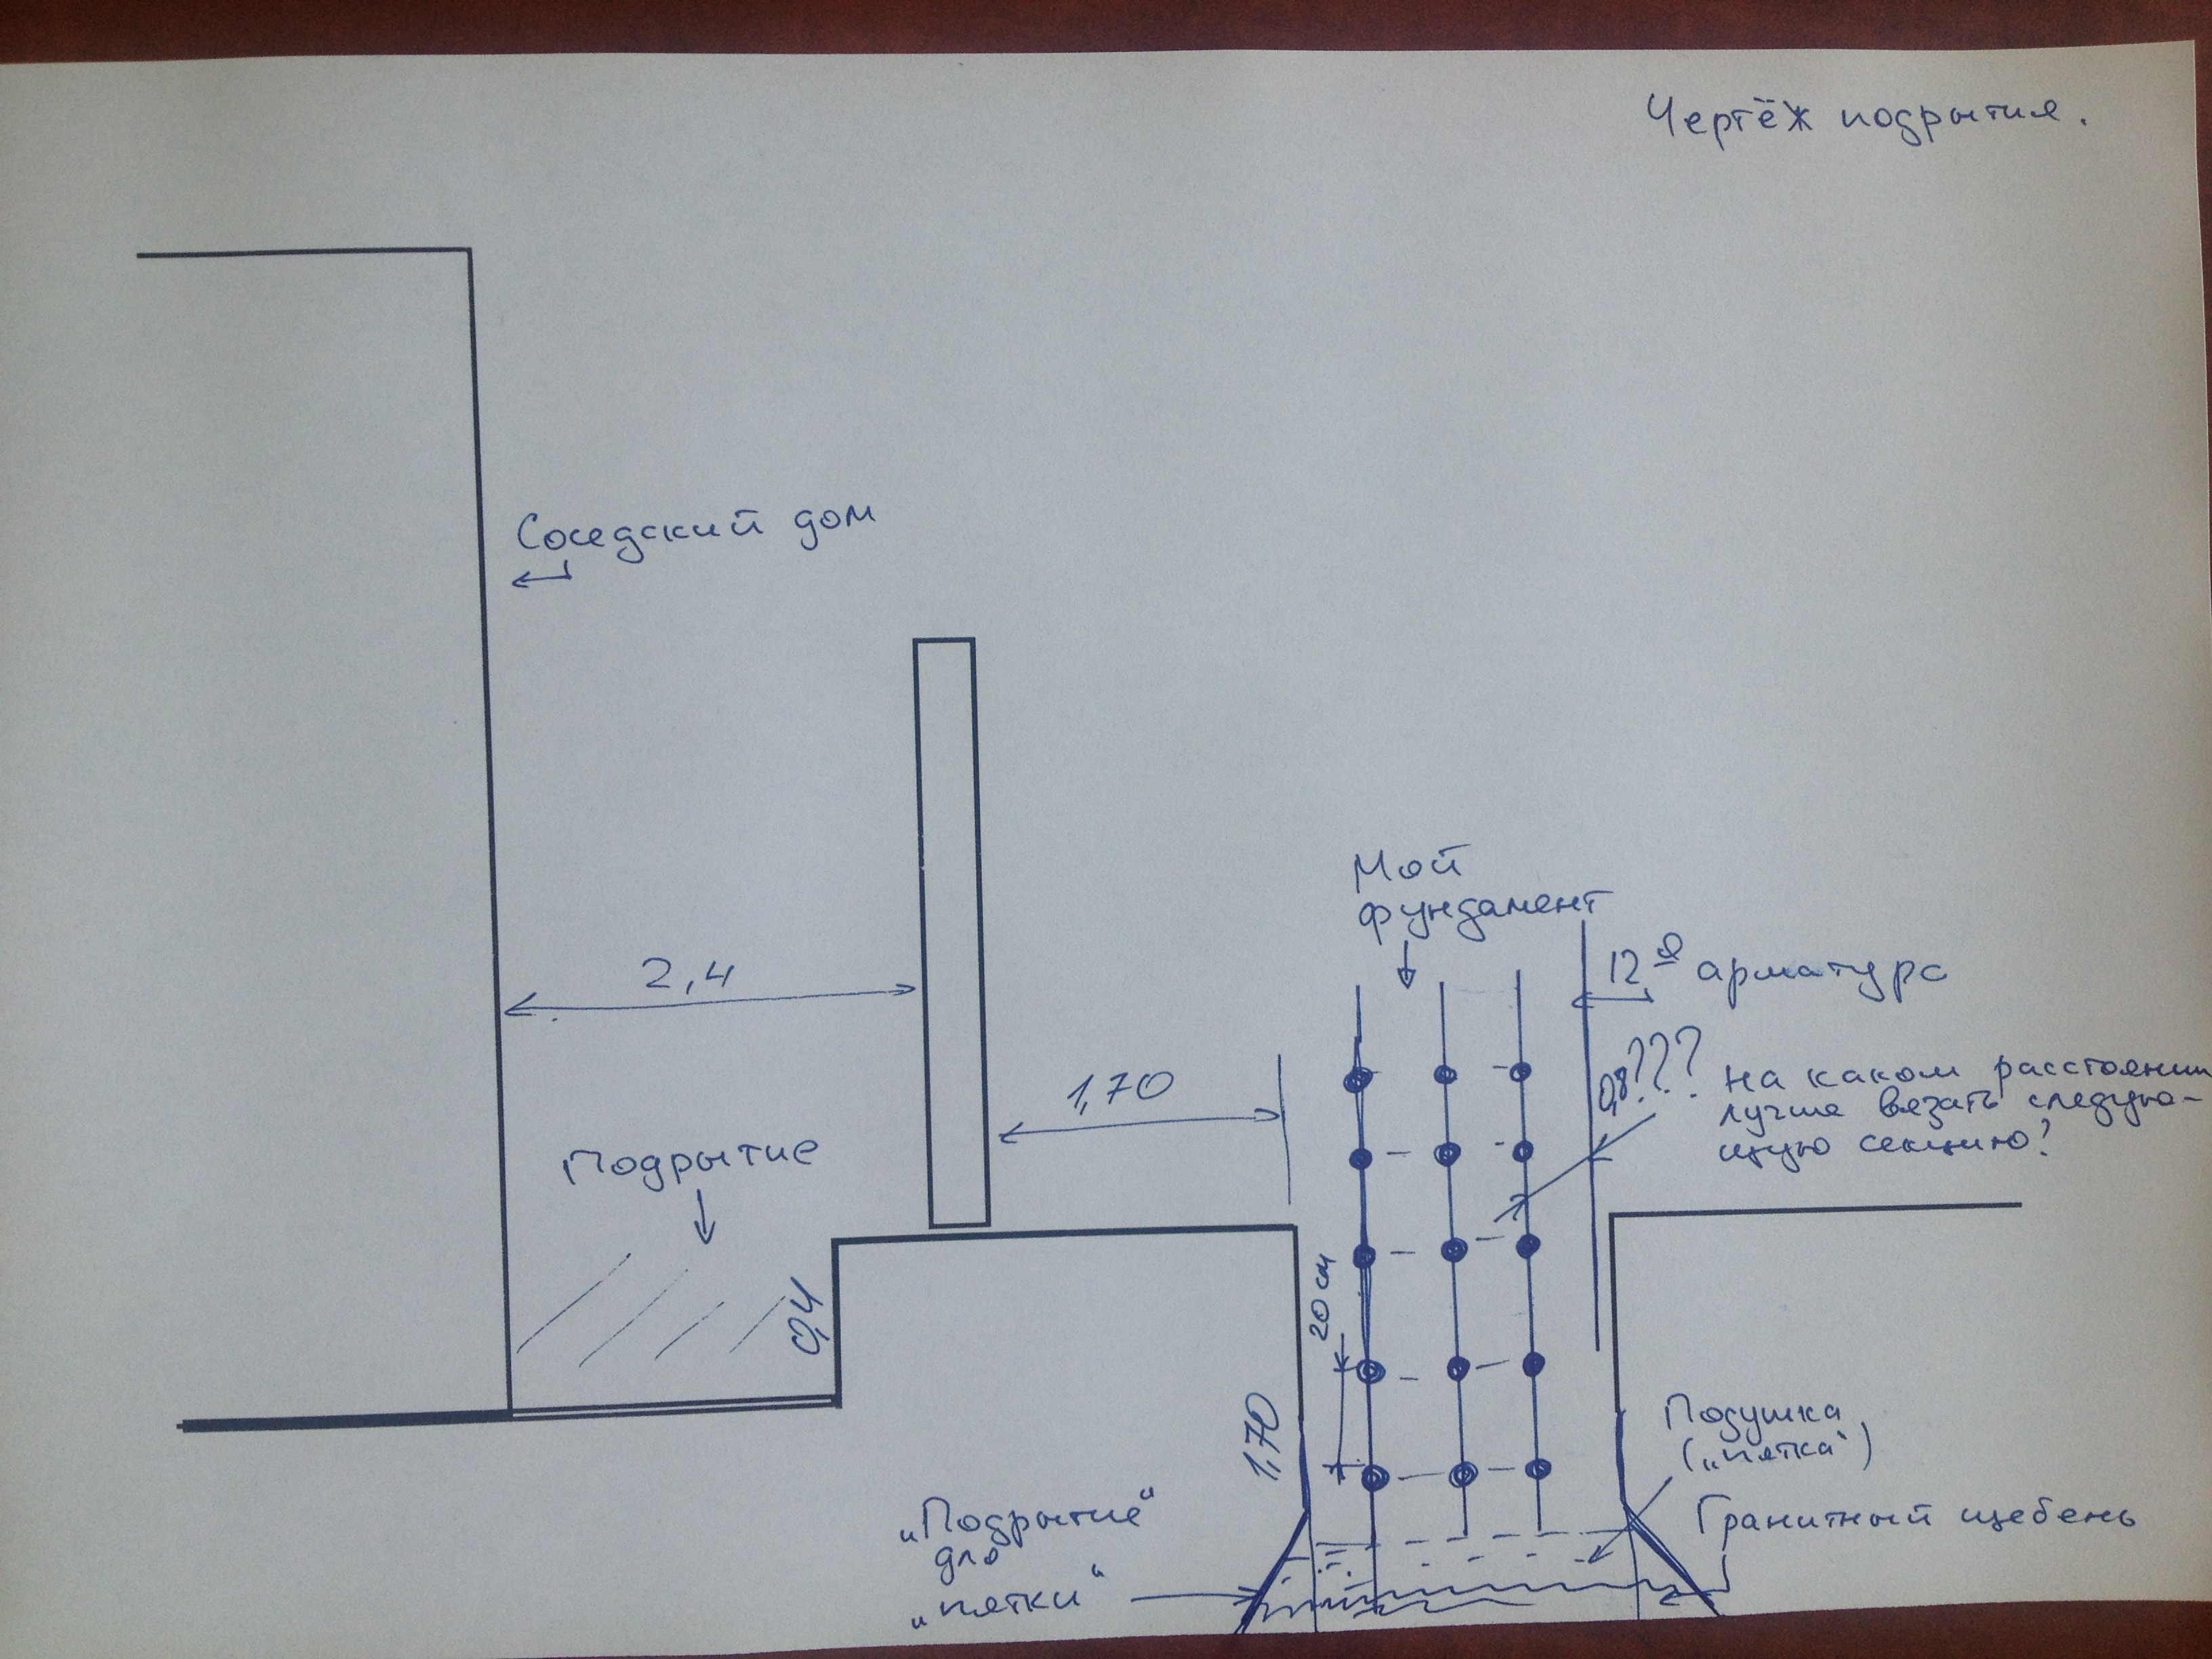 Чертёж подрытия.
Соседский дом
Мой
фундамент
2,4
12я арматура
1,70
0,8???
На каком расстоянии
лучше вязать следую-
щую секцию?
Подрытие
0,4
20 см
1,70
Подушка
("пятка")
"Подрытие"
для
"пятки"
Гранитный щебень